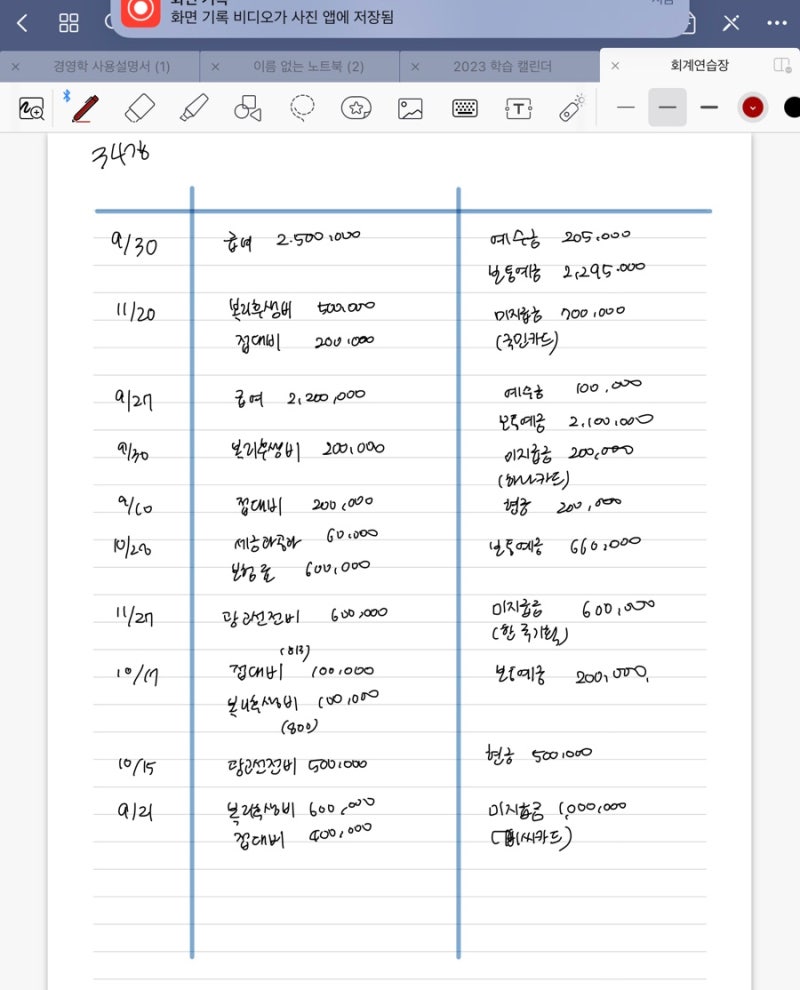 화면 기록 비디오가 사진 앱에 저장됨
경영학 사용설명서 (1)
이름 없는 노트북 (2)
2023 학습 캘린더
회계연습장
9/30 급여 2.500.000 예수금 205.000
보통예금 2,295.000
11/20 복리후생비 500,000 미지급금 700,000
접대비 200.000 (국민카드)
9/27 급여 2,200,000 예수금 100,000
보통예금 2,100,000
9/30 복리후생비 200,000 미지급금 200,000
(하나카드)
9/10 접대비 200,000 현금 200,000
10/28 세금과공과 60,000 보통예금 660,000
보험료 600,000
11/27 광고선전비 600,000 미지급금 600,000
(한국기획)
(813)
10/17 접대비 100,000 보통예금 200,000
복리후생비 100,000
(800)
현금 500,000
10/15 광고선전비 500,000
9/21 복리후생비 600,000 미지급금 1,000,000
접대비 400,000 (비씨카드)